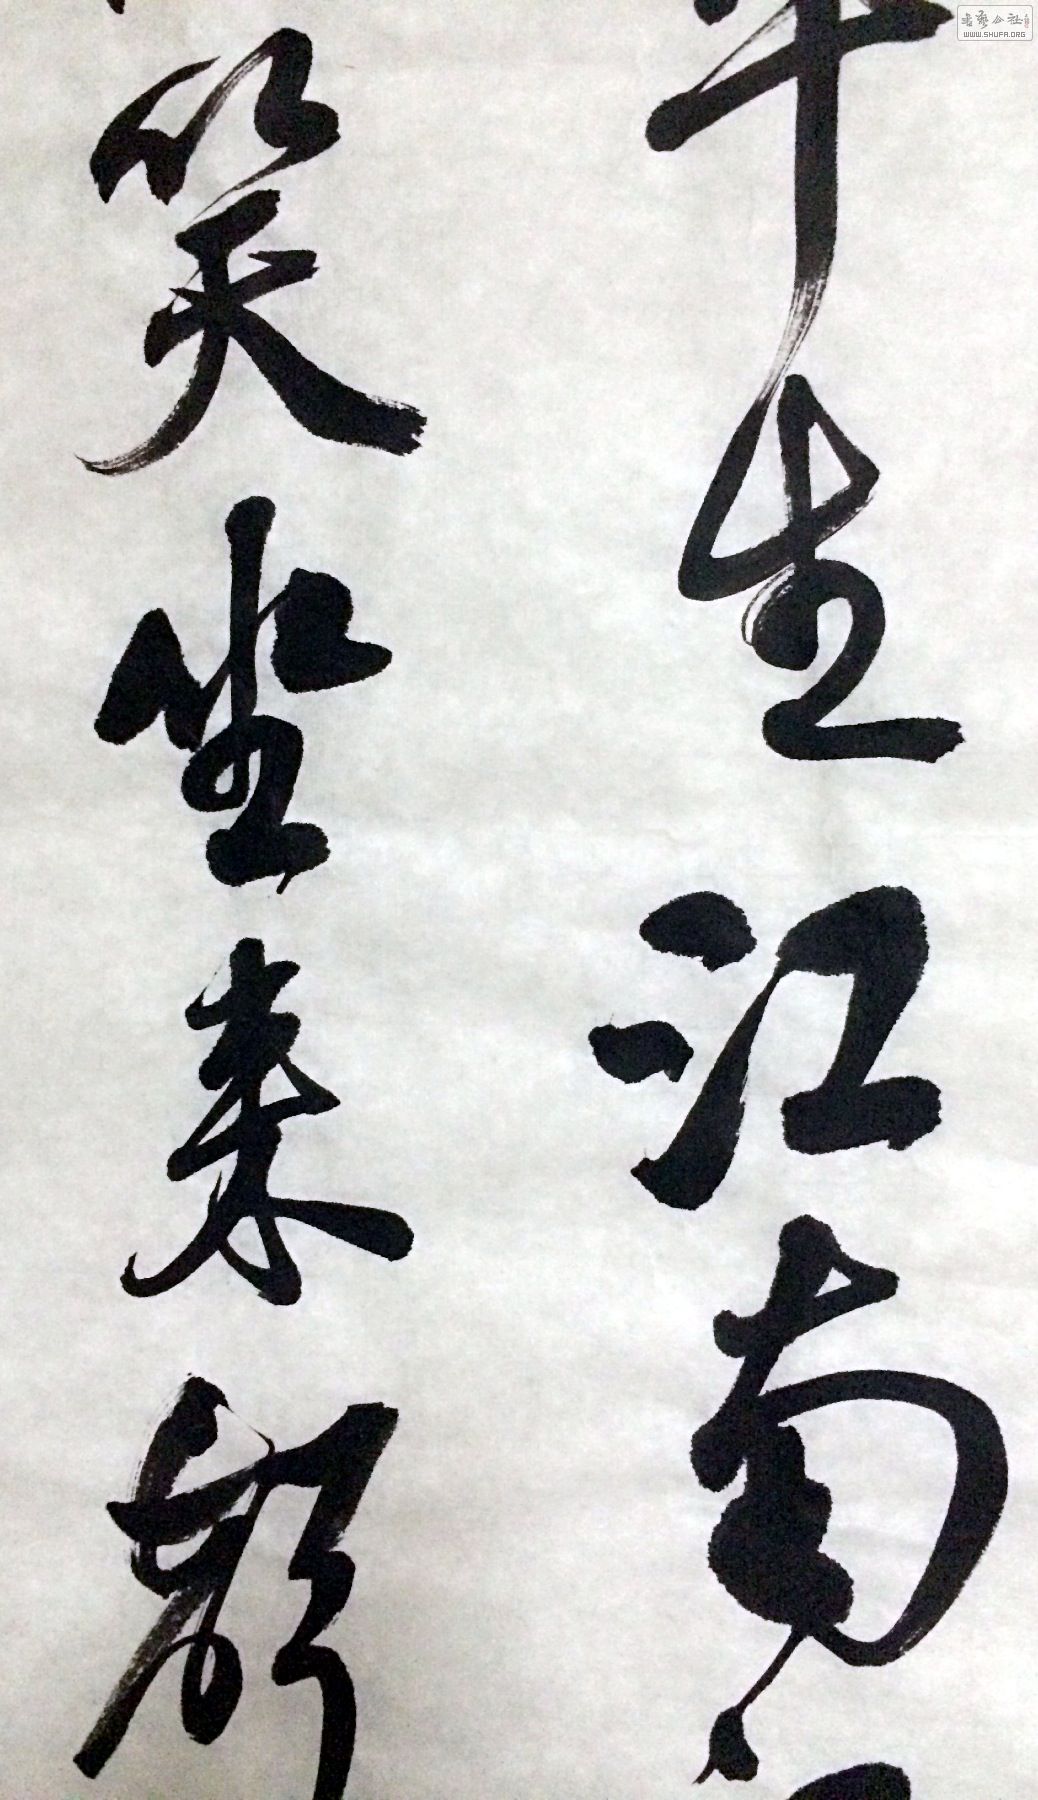 半生江南
笑坐来
书艺公社
WWW.SHUFA.ORG